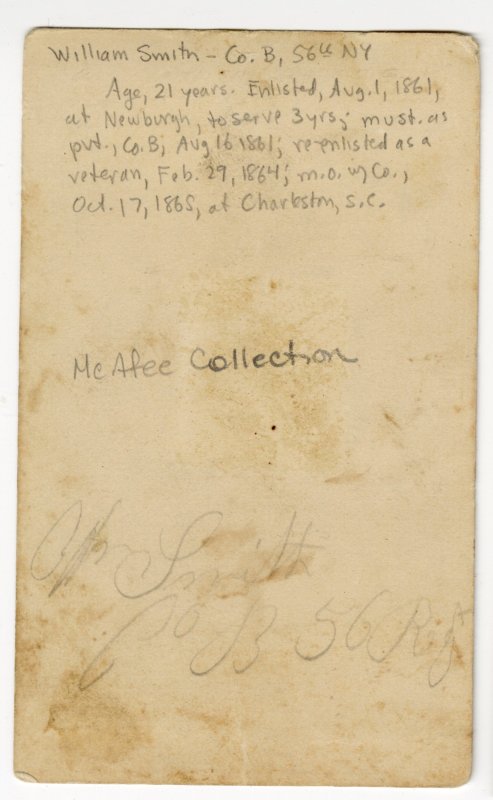 William Smith - Co. B, 56th NY
Age, 21 years. Enlisted, Aug. 1, 1861,
at Newburgh, to serve 3 yrs; must. as
pvt., Co. B, Aug 16 1861; re-enlisted as a
veteran, Feb. 29, 1864; m.o. w/ Co.,
Oct. 17, 1865, at Charleston, S.C.
McAfee Collection
Wm Smith
Co B 56 Rgt